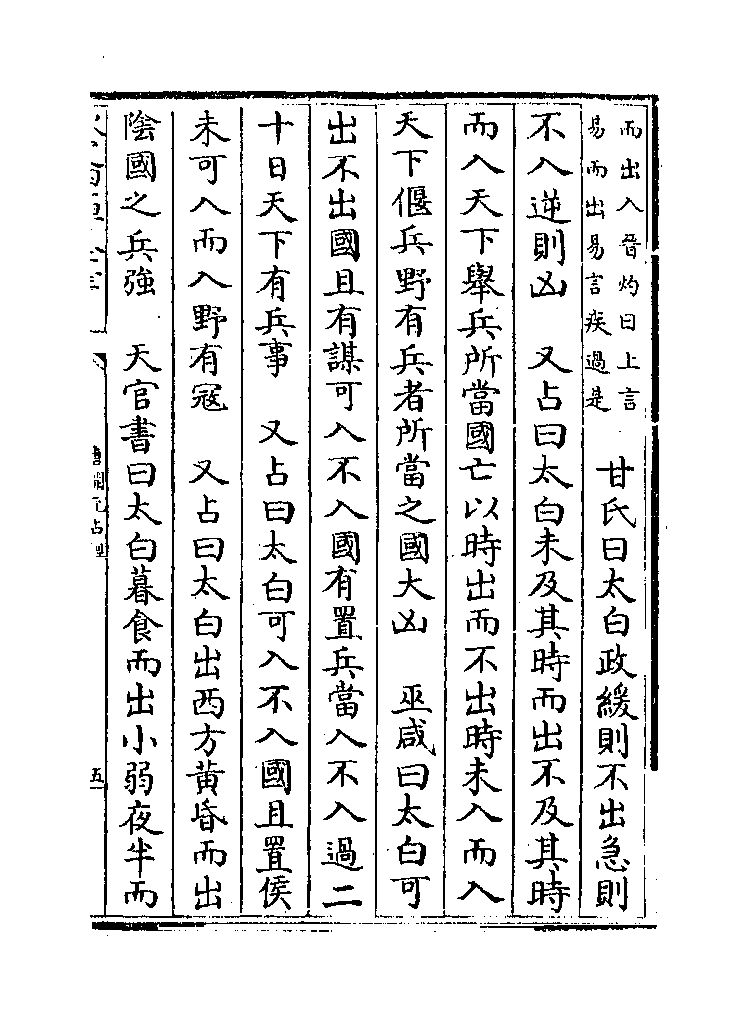 而出入晉灼曰上言
易而出易言疾過是
甘氏曰太白政緩則不出急則
不入逆則凶　又占曰太白未及其時而出不及其時
而入天下舉兵所當國亡以時出而不出時未入而入
天下偃兵野有兵者所當之國大凶　巫咸曰太白可
出不出國且有謀可入不入國有置兵當入不入過二
十日天下有兵事　又占曰太白可入不入國且置侯
未可入而入野有寇　又占曰太白出西方黃昏而出
陰國之兵強　天官書曰太白暮食而出小弱夜半而
唐開元占經
五